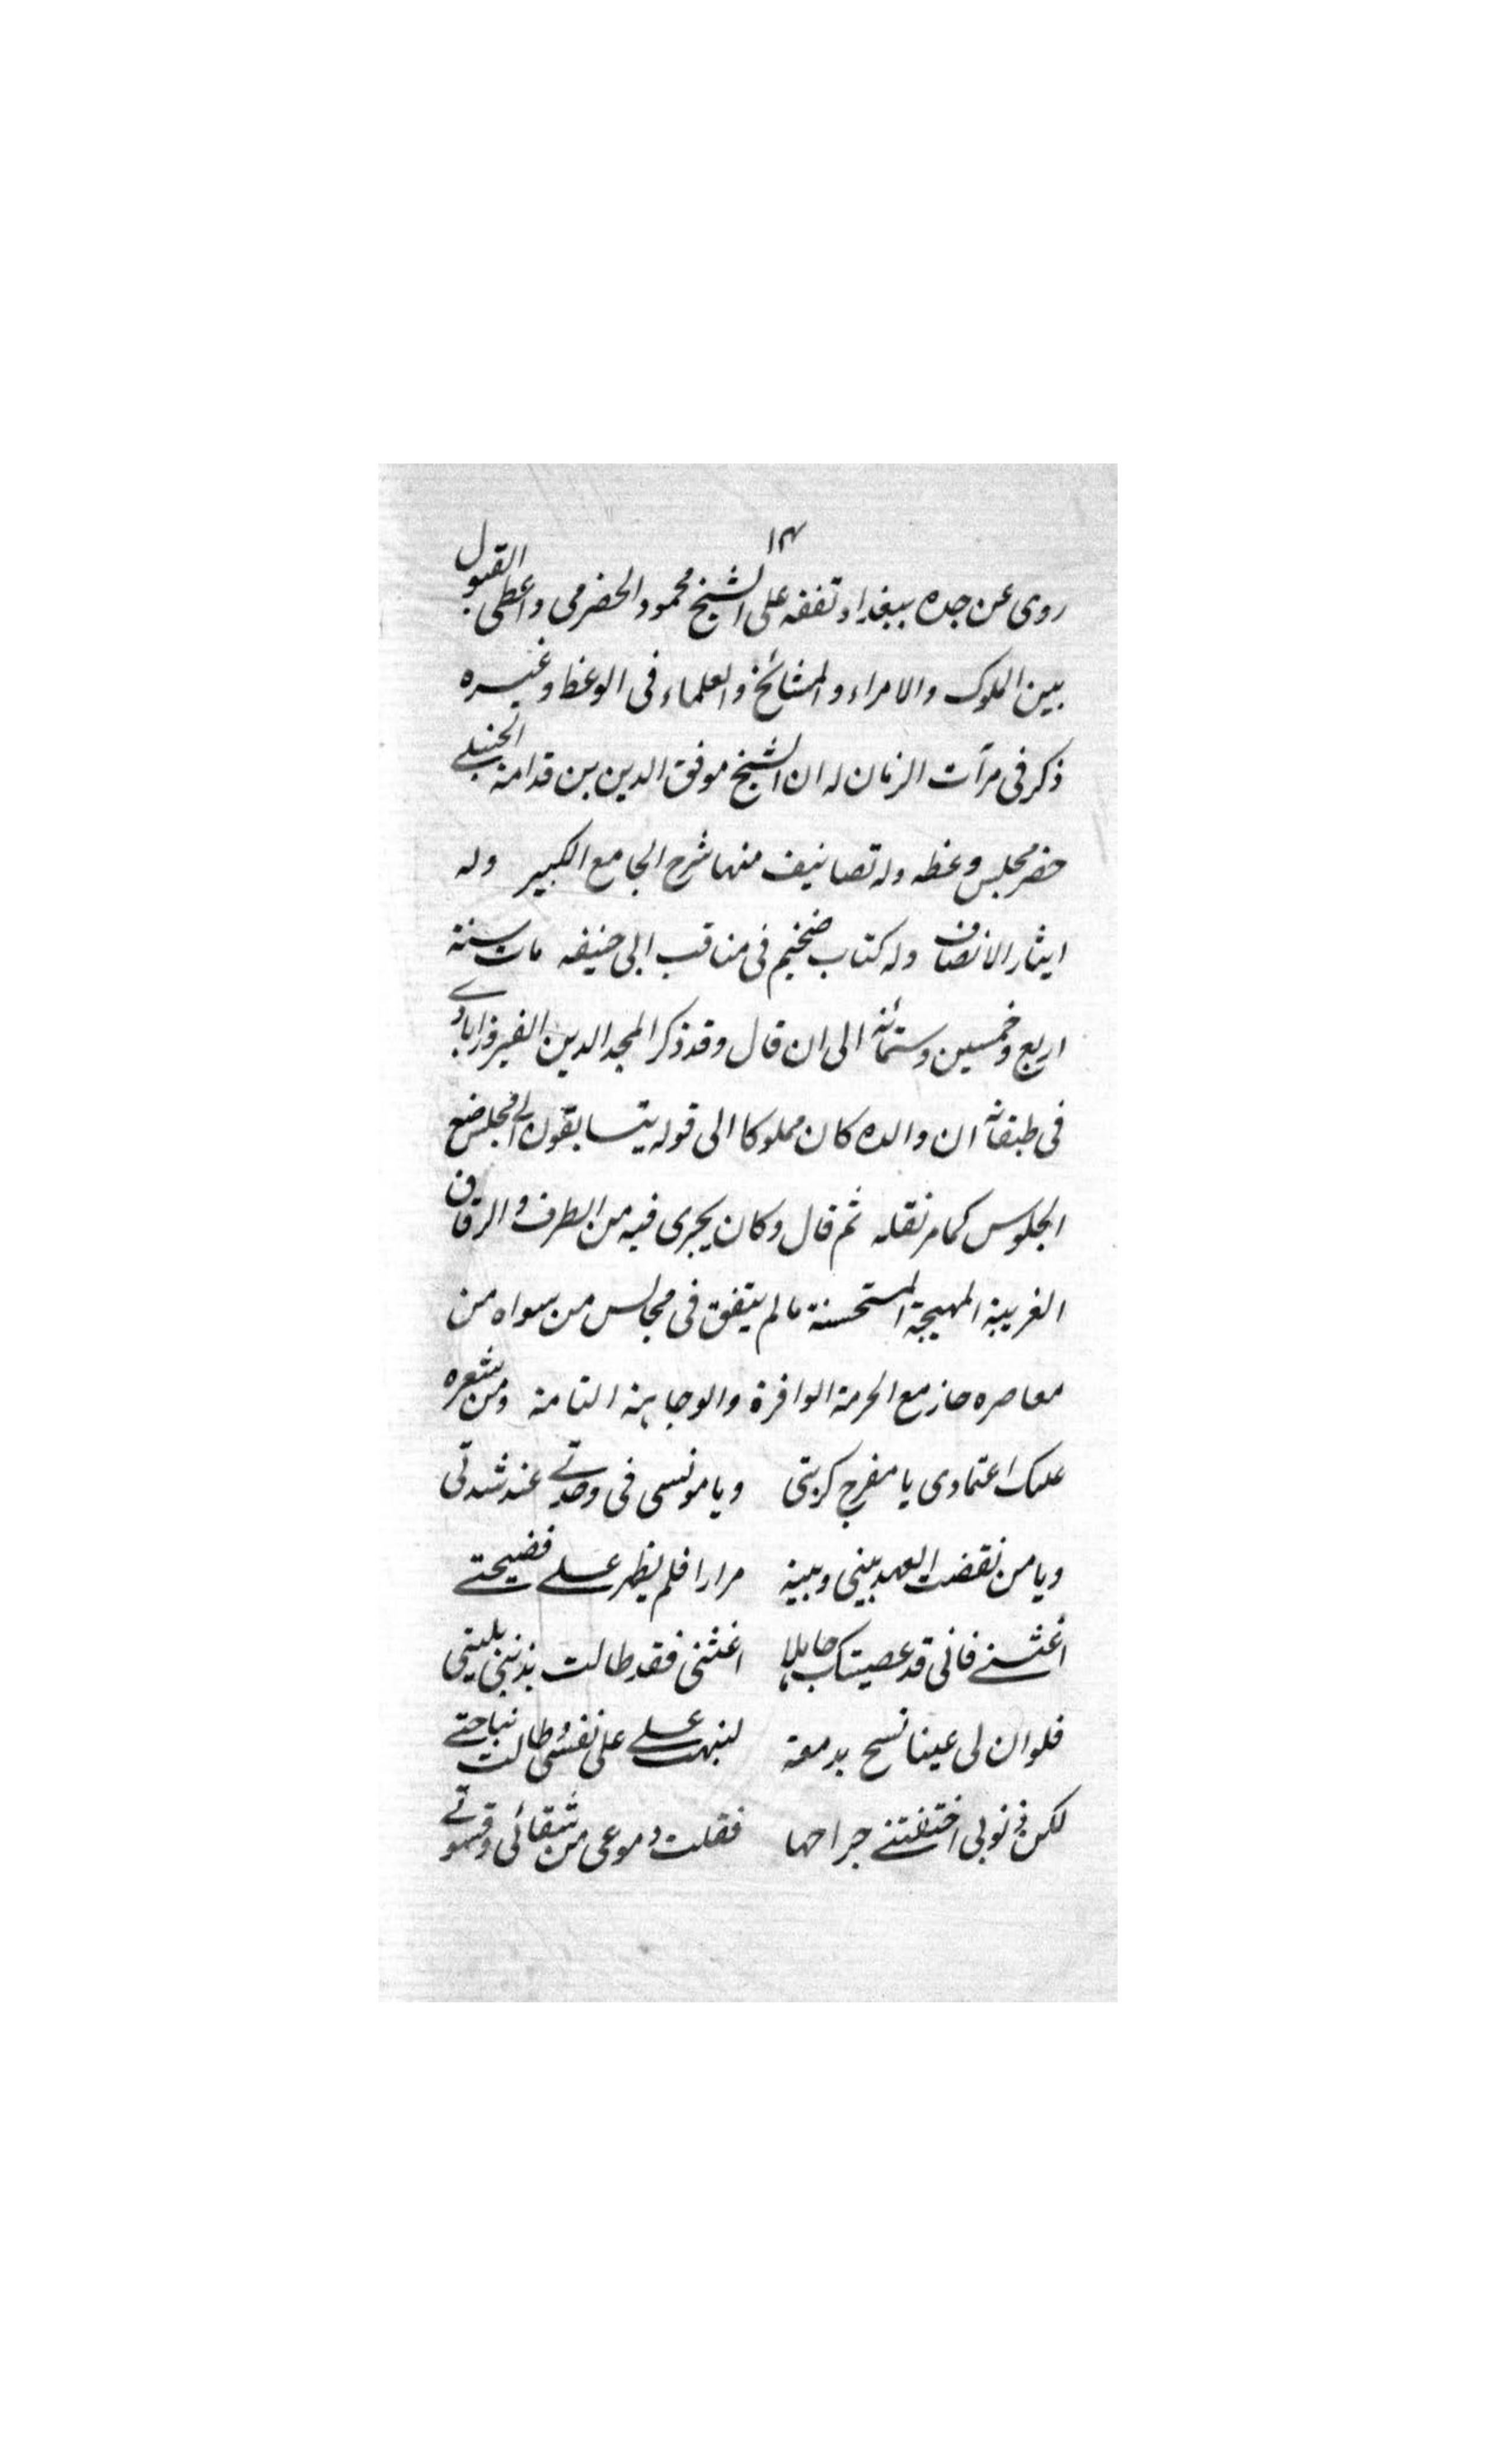 ١٣
روى عن جده ببغداد وتفقه على الشيخ محمود الحضرمى واعطى القبول
بين الملوك والامراء والمشائخ والعلماء فى الوعظ وغيره
ذكر فى مرآت الزمان له ان الشيخ موفق الدين بن قدامة الحنبلے
حضر مجلس وعظه وله تصانيف منها شرح الجامع الكبير وله
ايثار الانصاف وله كتاب ضخيم فى مناقب ابى حنيفه مات سنة
اربع وخمسين وستمائة الى ان قال وقد ذكر المجد الدين الفيروزابادے
فى طبقاته ان والده كان مملوكا الى قوله يتسابقون الے مجلس
الجلوس كما مر نقله ثم قال وكان يجرى فيه من الطرف والرقاق
الغريبة المهيجة المستحسنة مالم يتفق فى مجالس من سواه من
معاصره حاز مع الحرمة الوافرة والوجاهة التامة ومن شعره
عليك اعتمادى يا مفرج كربتى ويا مونسى فى وحدتے عند شدتى
ويا من نقضت العهد بينى وبينه مرارا فلم يظهر علے فضيحتے
اغثنے فانى قد عصيتك جاهلا اغثنى فقد طالت بذنبى بليتى
فلو ان لى عينا تسح بدمعة علے على نفسى وطالت نياحتے
لكن ذنوبى جراحها فقلت دموعى من شقائى وقسوتے